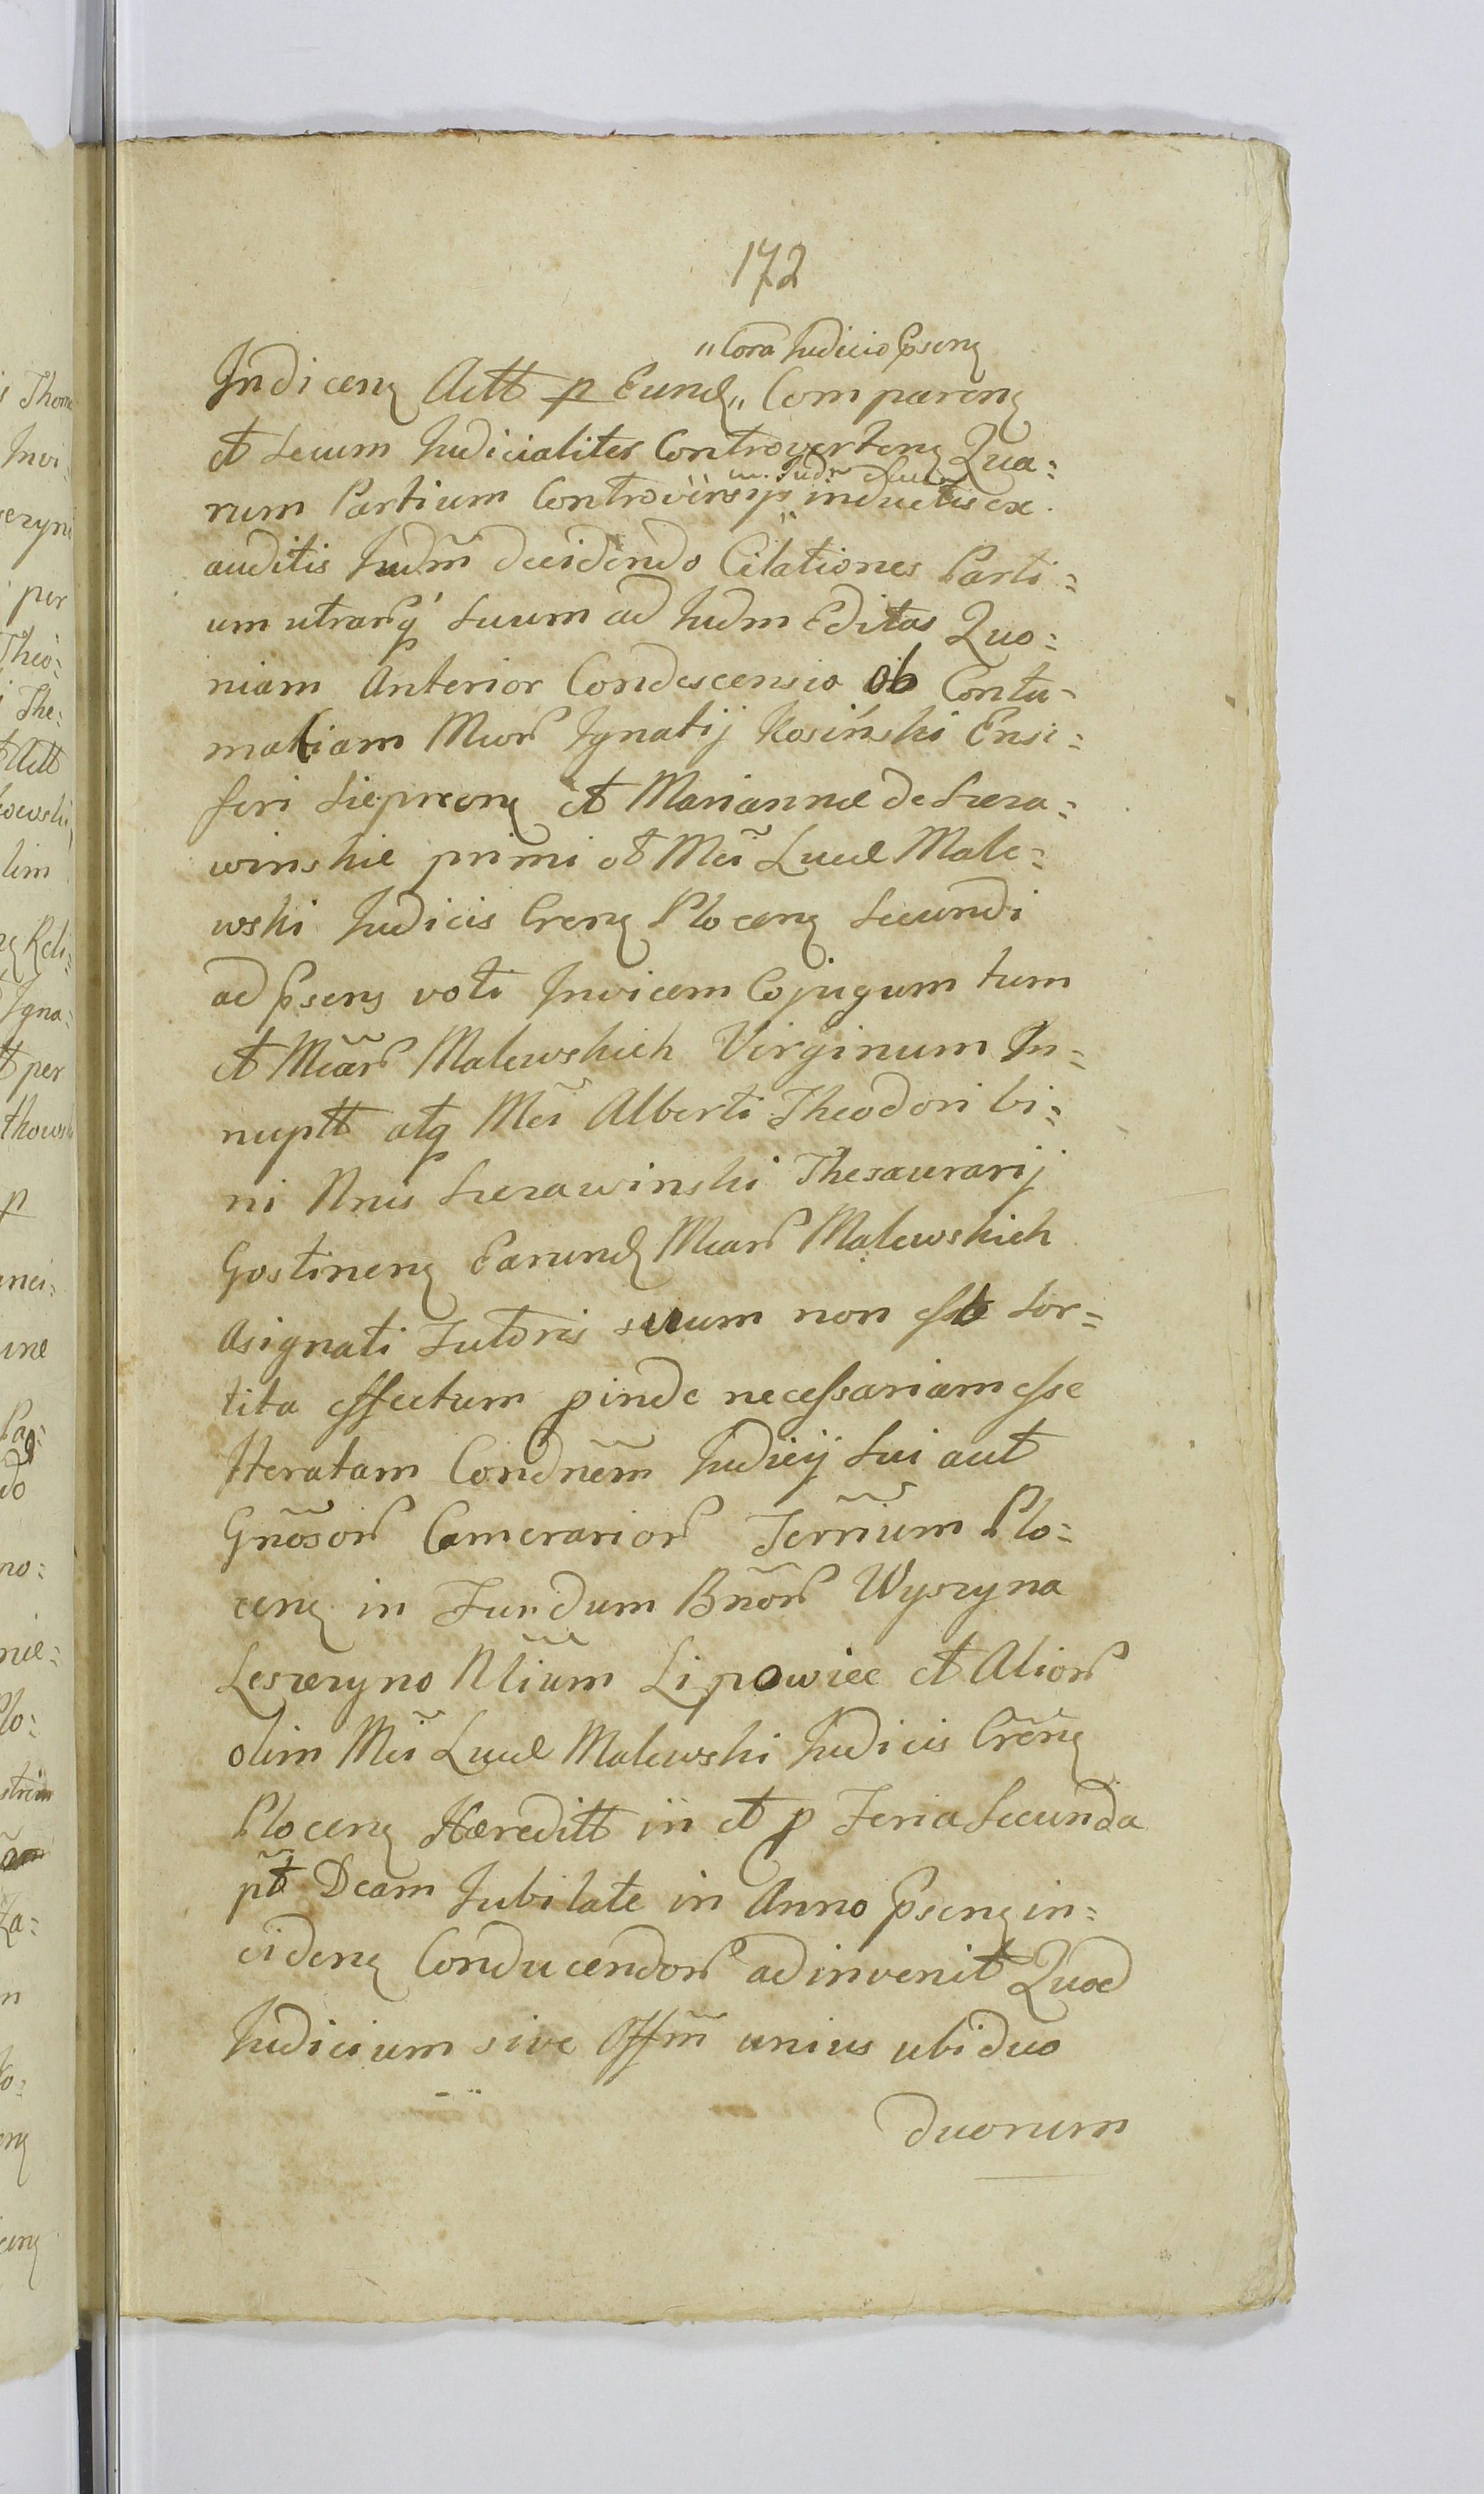 172
"Cora Judicio Psenӡ
Indicenӡ Actt p Eundӡ" Comparenӡ
et Secum Judicialiter Controvertenӡ Qua=
rum Partium Controversijs inductis ex
auditis Judm̃ decidendo Citationes Parti=
um utrarq̃ Suum ad Judm Editas Quo=
niam Anterior Condescensio Ob Contu-
matiam Mcor Ignatij Kosiński Ensi=
feri Sieprcenӡ et Mariannæ de Szcza=
winskie primi et Mci Lucæ Male=
wski Judicis Crenӡ Plocenӡ Secundi
ad Psens voti Invicem Cojugum tum
et Mcar Malewskich Virginum In=
nuptt atq Mci Alberti Theodori bi=
ni Nnis Szczawinski Thesaurarij
Gostinenӡ Earundӡ Mcar Malewskich
Asignati Tutoris suum non esse Sor=
tita effectum pinde necessariam esse
Iteratam Condnem̃ Judicij Sui aut
Gnõsor Camerarior Terrium Plo=
cenӡ in Fundum Bnõr Wyszyna
Leszczyno Nlium Lipowiec et Alior
olim Mci Lucæ Malewski Judicis Crenӡ
Plocenӡ Hæreditt in et p Feria Secunda
pt Dcam Jubilate in Anno Psenӡ in=
cidenӡ Conducendor adinvenit Quod
Judicium sive Offm̃ unius ubi duo
duorum